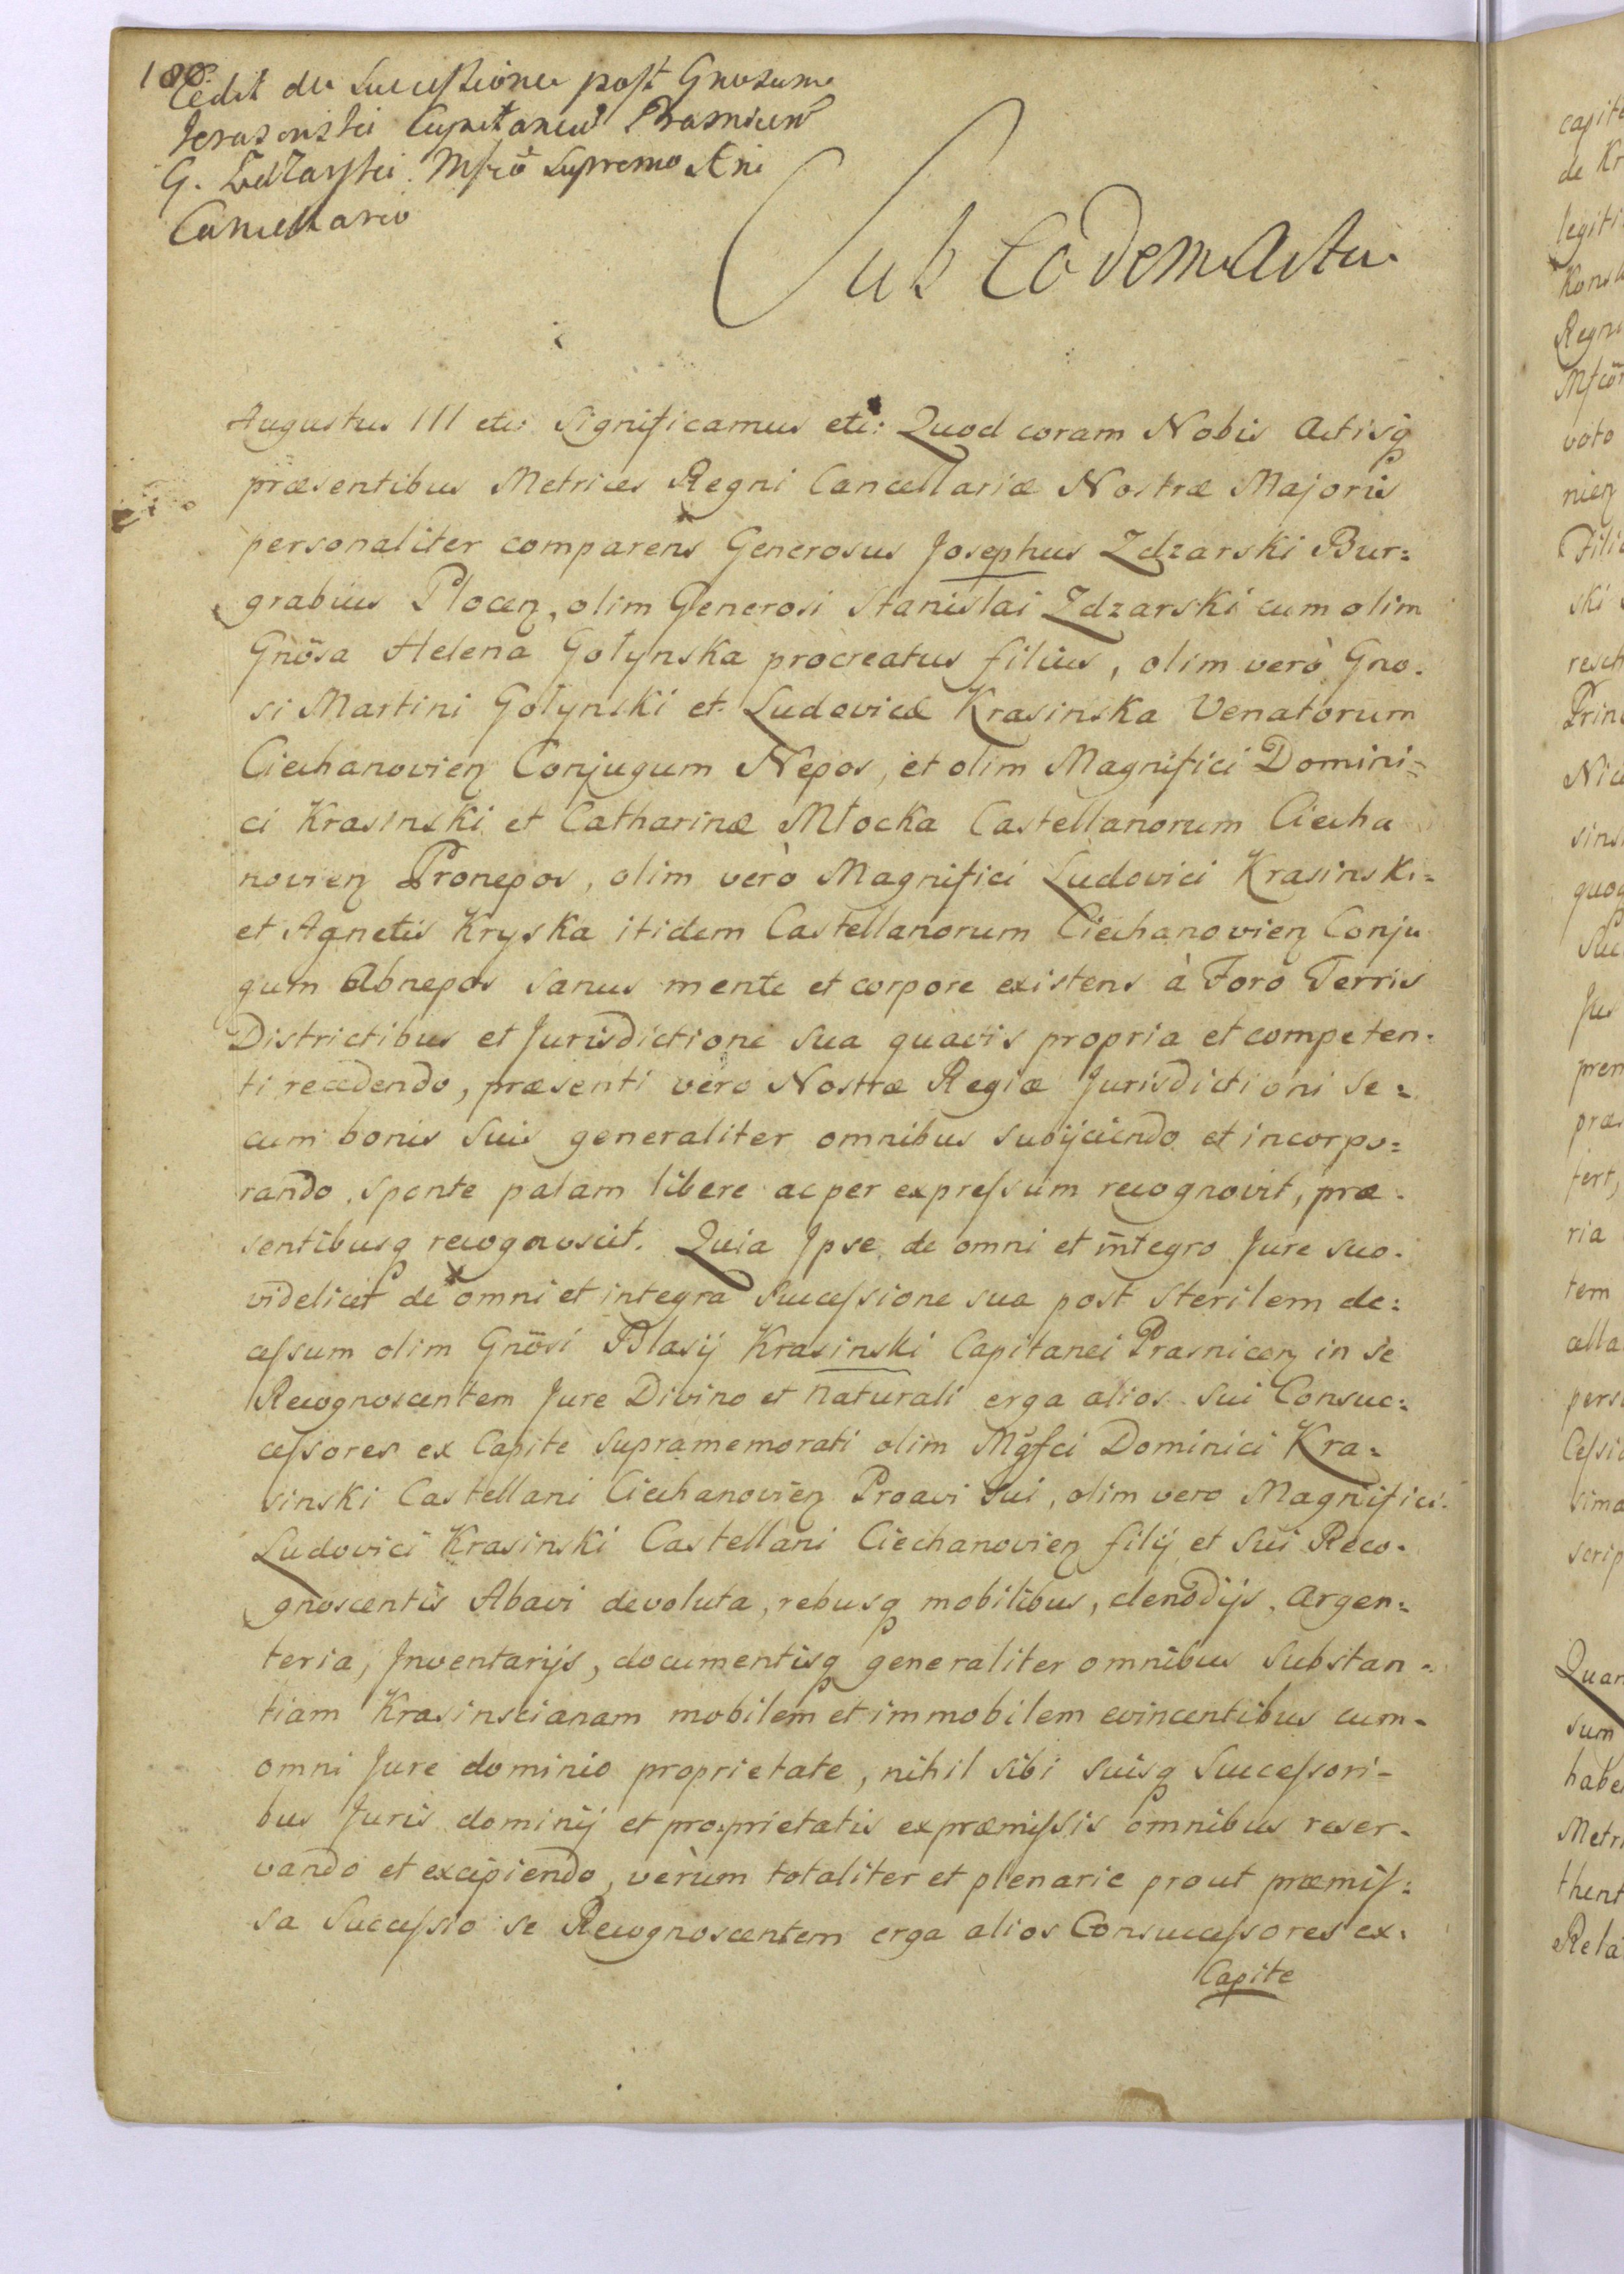 180.
Cedit de Successione post Gnosum
Krasinski Capitaneum Prasnicen
G. Zdzarski Mfco Supremo Rni
Cancellario
Sub Eodem Actu
Augustus III etc: Significamus etc: Quod coram Nobis Actisq
præsentibus Metrices Regni Cancellariæ Nostræ Majoris
personaliter comparens Generosus Josephus Zdzarski Bur=
grabius Plocen, olim Generosi Stanislai Zdzarski cum olim
Gnosa Helena Gołynska procreatus filius, olim verò Gno.
si Martini Gołynski et Ludovicæ Krasinska Venatorum
Ciechanovien Conjugum Nepos, et olim Magnifici Domini=
ci Krasinski et Catharinæ Młocka Castellanorum Ciecha
novien Pronepos, olim verò Magnifici Ludovici Krasinski=
et Agnetis Kryska itidem Castellanorum Ciechanovien Conju
gum Abnepos sanus mente et corpore existens à Foro Terris
Districtibus et Jurisdictione sua quavis propria et competen.
ti recedendo, præsenti vero Nostræ Regiæ Jurisdictioni se=
cum bonis suis generaliter omnibus subijciendo et incorpo=
rando, sponte palam libere ac per expressum recognovit, præ.
sentibusq recognoscit. Quia Jpse de omni et integro Jure suo.
videlicet de omni et integra Successione sua post sterilem de=
cessum olim Gnosi Blasij Krasinski Capitanei Prasnicen in se
Recognoscentem Jure Divino et naturali erga alios sui Consuc=
cessores ex Capite supramemorati olim Mgfci Dominici Kra=
sinski Castellani Ciechanovien Proavi sui, olim vero Magnifici.
Ludovici Krasinski Castellani Ciechanovien filij et sui Reco.
gnoscentis Abavi devoluta, rebusq mobilibus, clenodijs, argen=
teria, Jnventarijs, documentisq generaliter omnibus Substan=
tiam Krasinscianam mobilem et immobilem evincentibus cum=
omni Jure dominio proprietate, nihil sibi suisq Successori-
bus Juris dominij et proprietatis ex præmissis omnibus reser-
vando et excipiendo, verùm totaliter et plenarie prout præmis=
sa Successio se Recognoscentem erga alios Consuccessores ex.
Capite
capite
de Kr
legiti
Regni
voto
nien
ski
Prin
quoq
Jus
fert,
ria
tem
cella
scrip
Quar
sum
habe
Metri
thent
Rela